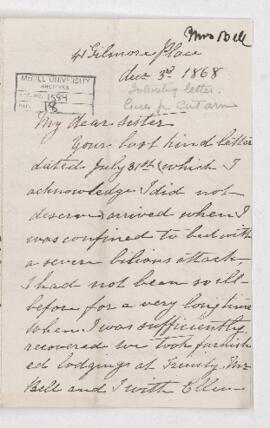 Mrs Bell
41 Gilmore Place
Dec 3rd 1868
McGILL UNIVERSITY
ARCHIVES
ACC. NO. 1584
REF. 18
Interesting letter.
Cures for Cut arm
My dear sister
Your last kind letter
dated July 31st (which I
acknowledge I did not
deserve) arrived when I
was confined to bed with
a severe bilious attack,
I had not been so ill
before for a very long time
When I was sufficiently
recovered we took furnish
ed lodgings at Trinity Mr
Bell and I with Ellen